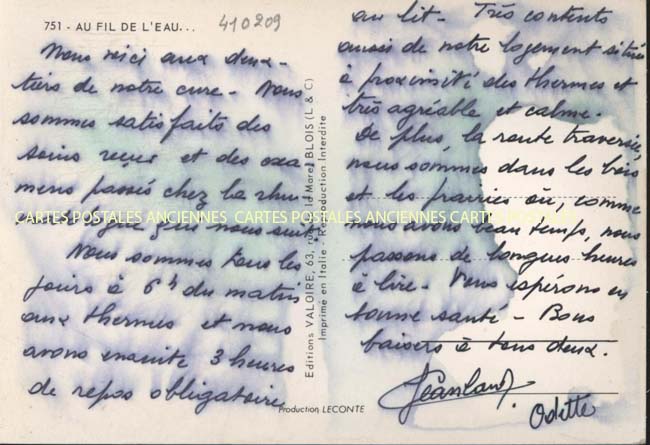 751 - AU FIL DE L'EAU...
410209
Nous voici aux deux-
tiers de notre cure - Nous
sommes satisfaits des
soins reçus et des exa-
mens passés chez la rhu
qui nous suit.
Nous sommes tous les
jours à 6h du matin
aux thermes et nous
avons ensuite 3 heures
de repos obligatoire
Editions VALOIRE, 63, rue BLOIS (L & C)
Imprimé en Italie - Reproduction Interdite
Production LECONTE
au lit - Très contents
aussi de notre logement situé
à proximité des thermes et
très agréable et calme.
De plus, la route traversée,
nous sommes dans les bois
et les prairies où, comme
nous avons beau temps, nous
passons de longues heures
à lire - Vous espérons en
bonne santé - Bons
baisers à tous deux.
Odette
CARTES POSTALES ANCIENNES CARTES POSTALES ANCIENNES CARTES POSTALES